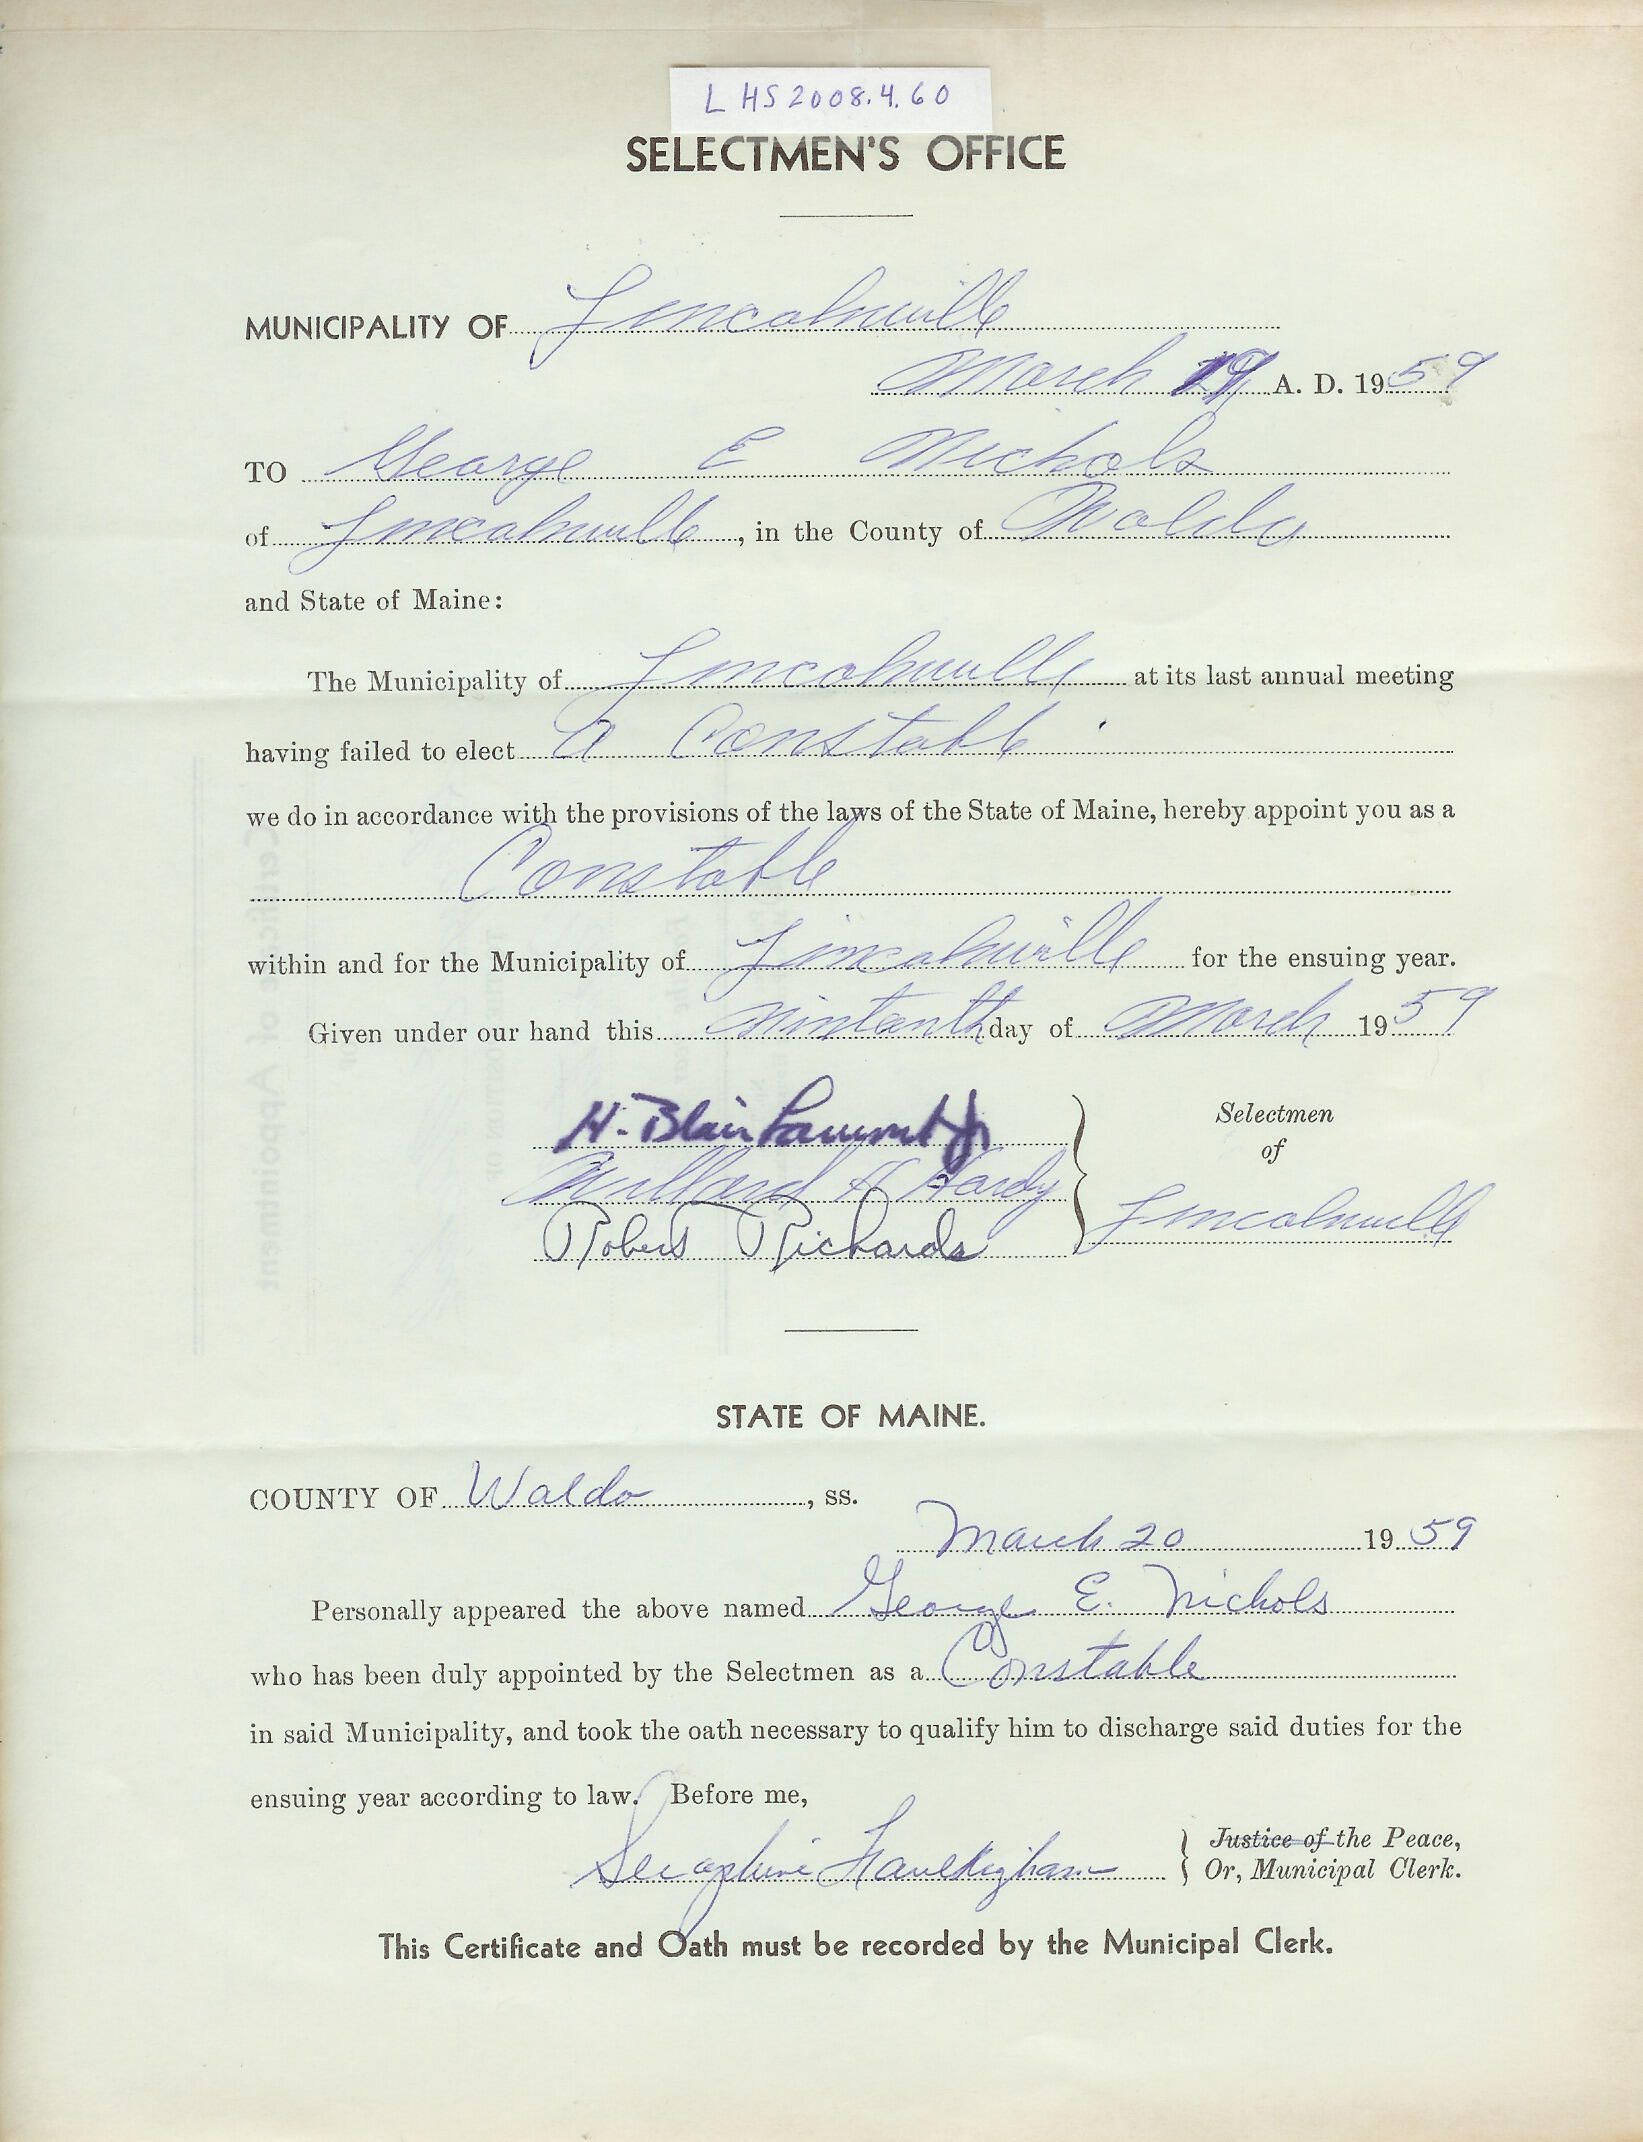 LHS2008.4.60
SELECTMEN'S OFFICE
MUNICIPALITY OF Lincolnville
March 19 A. D. 1959
TO George E Nichols
of Lincolnville, in the County of Waldo
and State of Maine:
The Municipality of Lincolnville at its last annual meeting
having failed to elect A Constable
we do in accordance with the provisions of the laws of the State of Maine, hereby appoint you as a
Constable
within and for the Municipality of Lincolnville for the ensuing year.
Given under our hand this Nintenth day of March 1959
H. Blair Lamont Jr
Millard H Hardy
Robert Richards
Selectmen
of
Lincolnville
STATE OF MAINE.
COUNTY OF Waldo, ss.
March 20 1959
Personally appeared the above named George E. Nichols
who has been duly appointed by the Selectmen as a Constable
in said Municipality, and took the oath necessary to qualify him to discharge said duties for the
ensuing year according to law. Before me,
Justice of the Peace,
Or, Municipal Clerk.
This Certificate and Oath must be recorded by the Municipal Clerk.